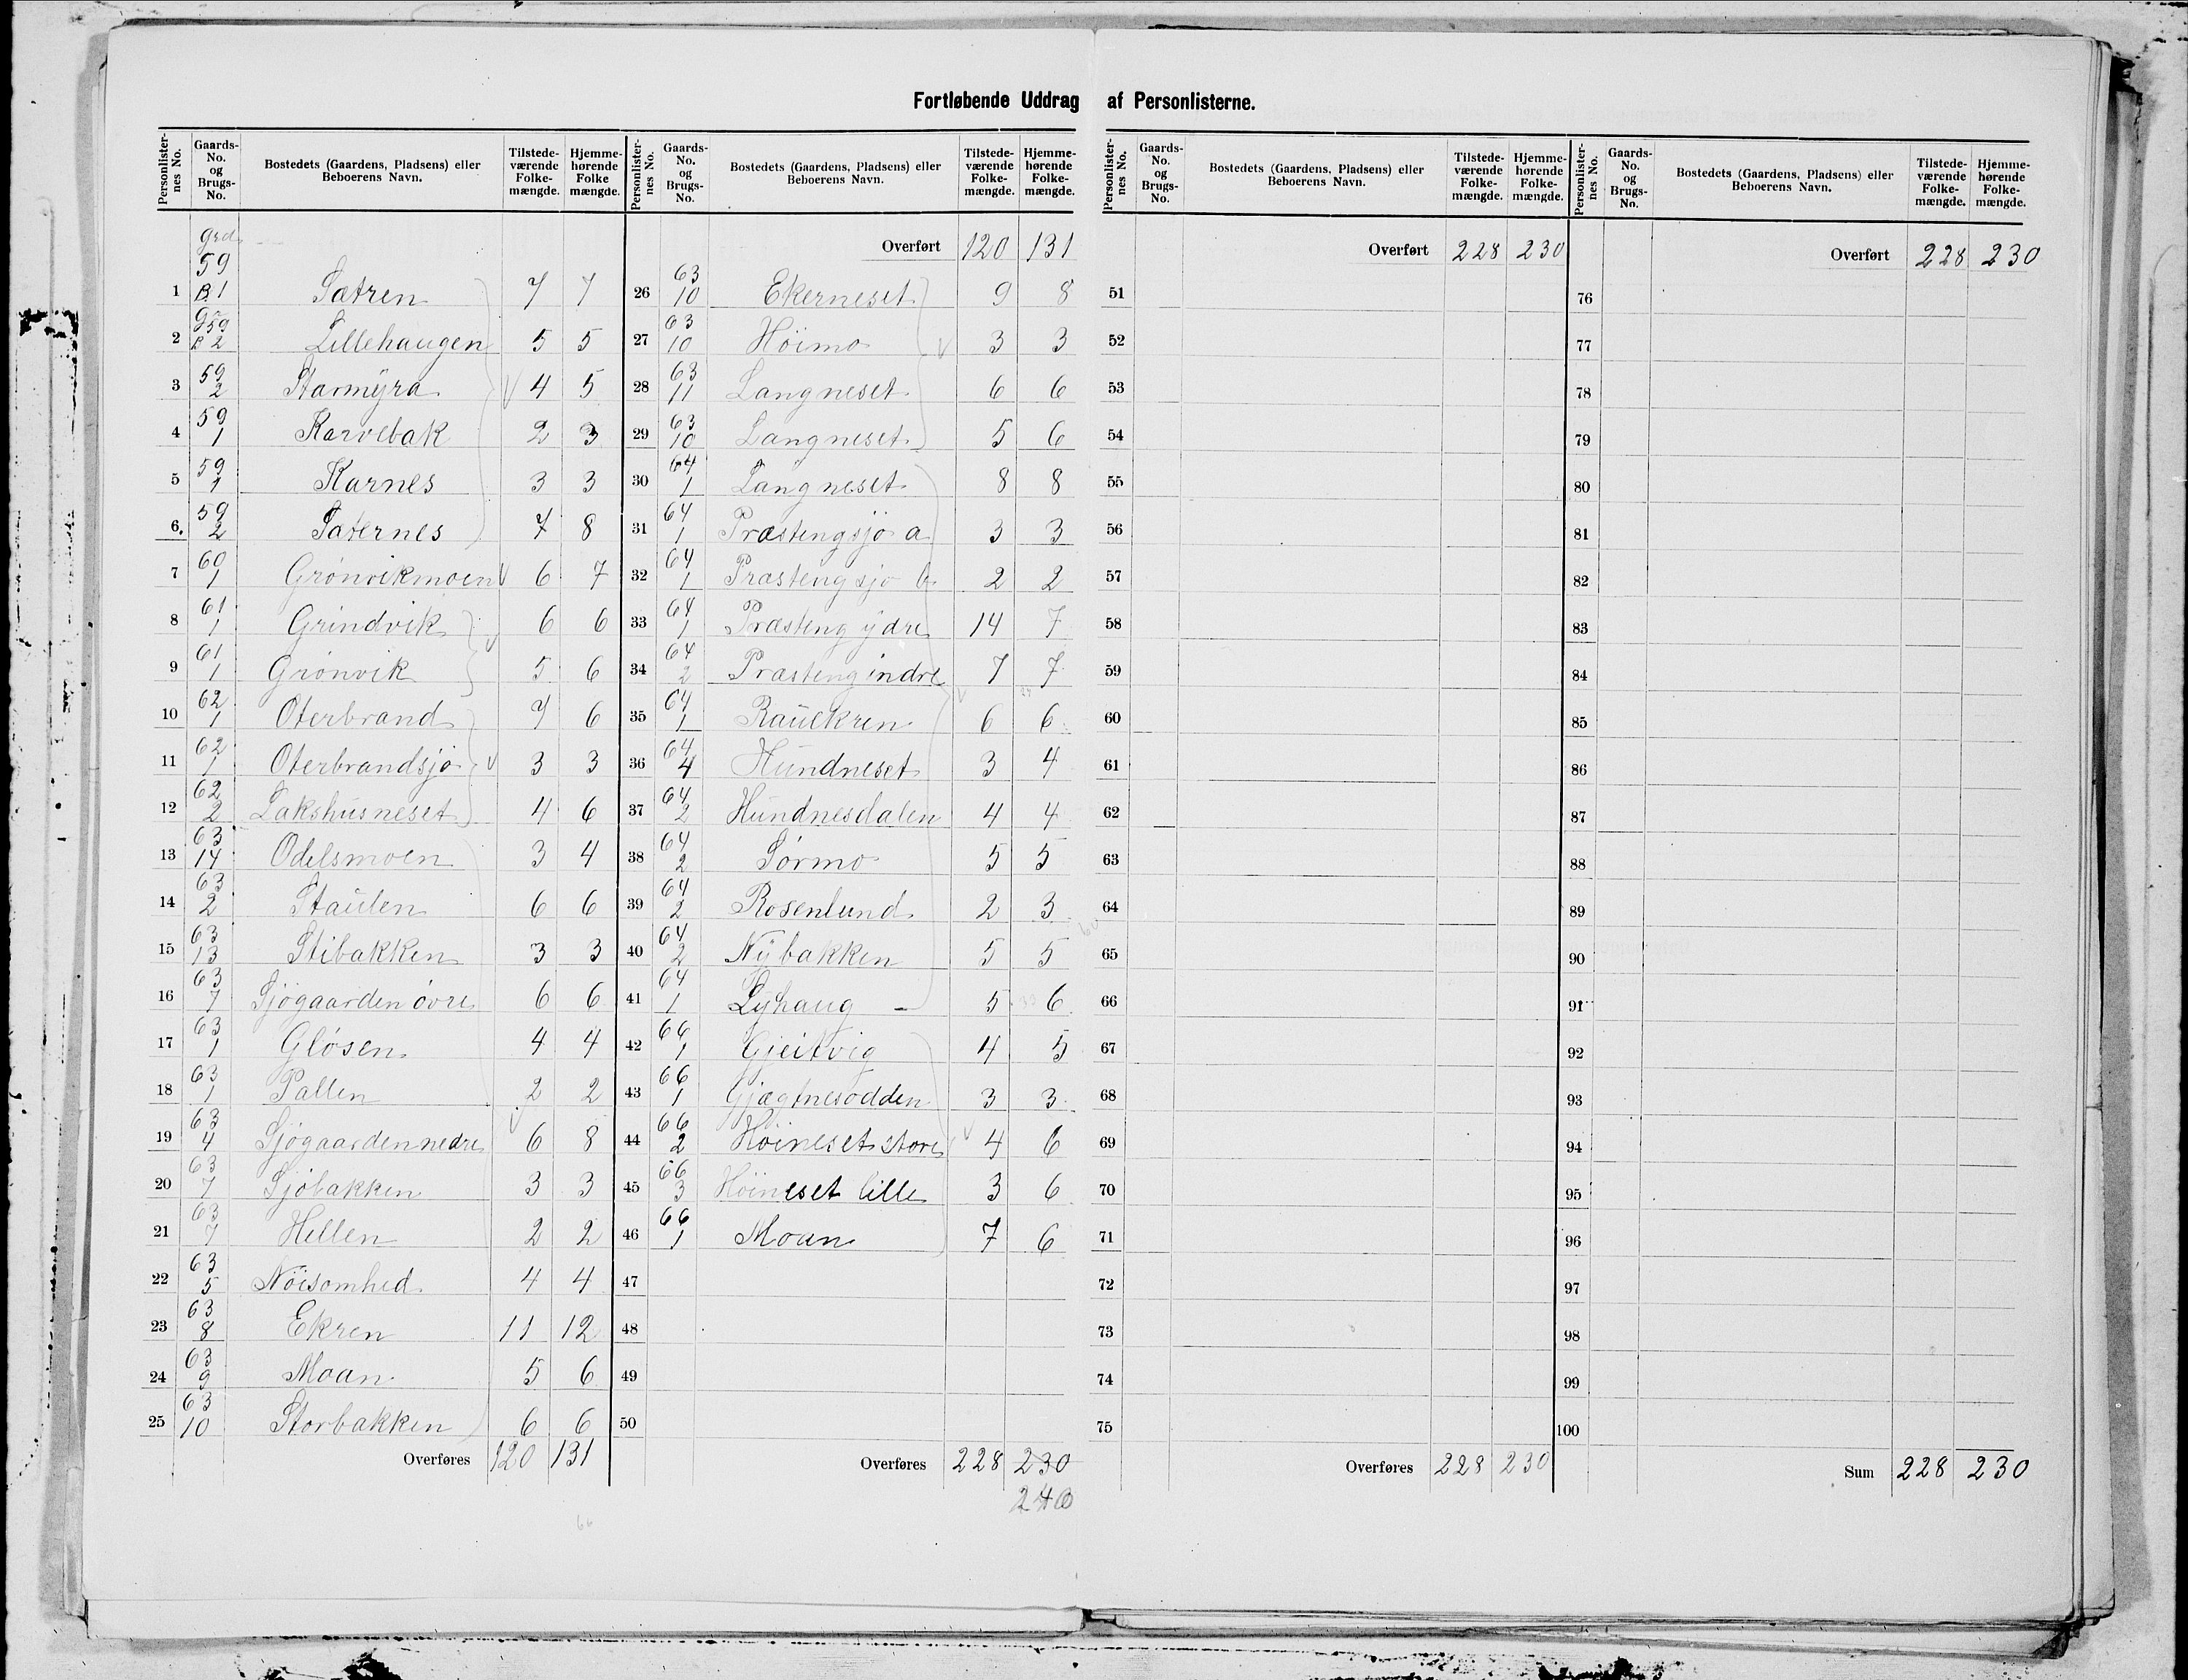 Fortløbende Uddrag af Personlisterne.
Personlister-nes No. | Gaards-No. og Brugs-No. | Bostedets (Gaardens, Pladsens) eller Beboerens Navn. | Tilstede-værende Folke-mængde. | Hjemme-hørende Folke mængde.
1 | Grd 59 B.1 | Sætren | 7 | 7
2 | G 59 B 2 | Lillehaugen | 5 | 5
3 | 59 2 | Starmyra | 4 | 5
4 | 59 1 | Karvebak | 2 | 3
5 | 59 1 | Karnes | 3 | 3
6. | 59 2 | Säternes | 7 | 8
7 | 60 1 | Grönvikmoen | 6 | 7
8 | 61 1 | Grindvik | 6 | 6
9 | 61 1 | Grönvik | 5 | 6
10 | 62 1 | Oterbrand | 7 | 6
11 | 62 1 | Oterbrandsjö | 3 | 3
12 | 62 2 | Lakshusneset | 4 | 6
13 | 63 14 | Odelsmoen | 3 | 4
14 | 63 2 | Staulen | 6 | 6
15 | 63 13 | Stibakken | 3 | 3
16 | 63 7 | Sjögaarden övre | 6 | 6
17 | 63 1 | Glösen | 4 | 4
18 | 63 1 | Pallen | 2 | 2
19 | 63 4 | Sjögaarden nedre | 6 | 8
20 | 63 7 | Sjöbakken | 3 | 3
21 | 63 7 | Hellen | 2 | 2
22 | 63 5 | Nöisomhed | 4 | 4
23 | 63 8 | Ekren | 11 | 12
24 | 63 9 | Moan | 5 | 6
25 | 63 10 | Storbakken | 6 | 6
Overføres | 120 | 131
Personlister-nes No. | Gaards-No. og Brugs-No. | Bostedets (Gaardens, Pladsens) eller Beboerens Navn. | Tilstede-værende Folke-mængde. | Hjemme-hørende Folke-mængde.
Overført | 120 | 131
26 | 63 10 | Ekerneset | 9 | 8
27 | 63 10 | Höimo | 3 | 3
28 | 63 11 | Langneset | 6 | 6
29 | 63 10 | Langneset | 5 | 6
30 | 64 1 | Langneset | 8 | 8
31 | 64 1 | Præstengsjö a | 3 | 3
32 | 64 1 | Præstengsjö b | 2 | 2
33 | 64 1 | Præsteng ydre | 14 | 7
34 | 64 2 | Præsteng indre | 7 | 7
35 | 64 1 | Rauekren | 6 | 6
36 | 64 4 | Hundneset | 3 | 4
37 | 64 2 | Hundnesdalen | 4 | 4
38 | 64 2 | Sörmo | 5 | 5
39 | 64 2 | Rosenlund | 2 | 3
40 | 64 2 | Nybakken | 5 | 5
41 | 64 1 | Lyhaug | 5 | 6
42 | 66 1 | Gjeitvig | 4 | 5
43 | 66 1 | Gjægtnesodden | 3 | 3
44 | 66 2 | Höineset store | 4 | 6
45 | 66 3 | Höineset lille | 3 | 6
46 | 66 1 | Moan | 7 | 6
47
48
49
50
Overføres | 228 | 230
240
Personlister-nes No. | Gaards-No. og Brugs-No. | Bostedets (Gaardens, Pladsens) eller Beboerens Navn. | Tilstede-værende Folke-mængde. | Hjemme-hørende Folke-mængde.
Overført | 228 | 230
51
52
53
54
55
56
57
58
59
60
61
62
63
64
65
66
67
68
69
70
71
72
73
74
75
Overføres | 228 | 230
Personlister-nes No. | Gaards-No. og Brugs-No. | Bostedets (Gaardens, Pladsens) eller Beboerens Navn. | Tilstede-værende Folke-mængde. | Hjemme-hørende Folke-mængde.
Overført | 228 | 230
76
77
78
79
80
81
82
83
84
85
86
87
88
89
90
91
92
93
94
95
96
97
98
99
100
Sum | 228 | 230